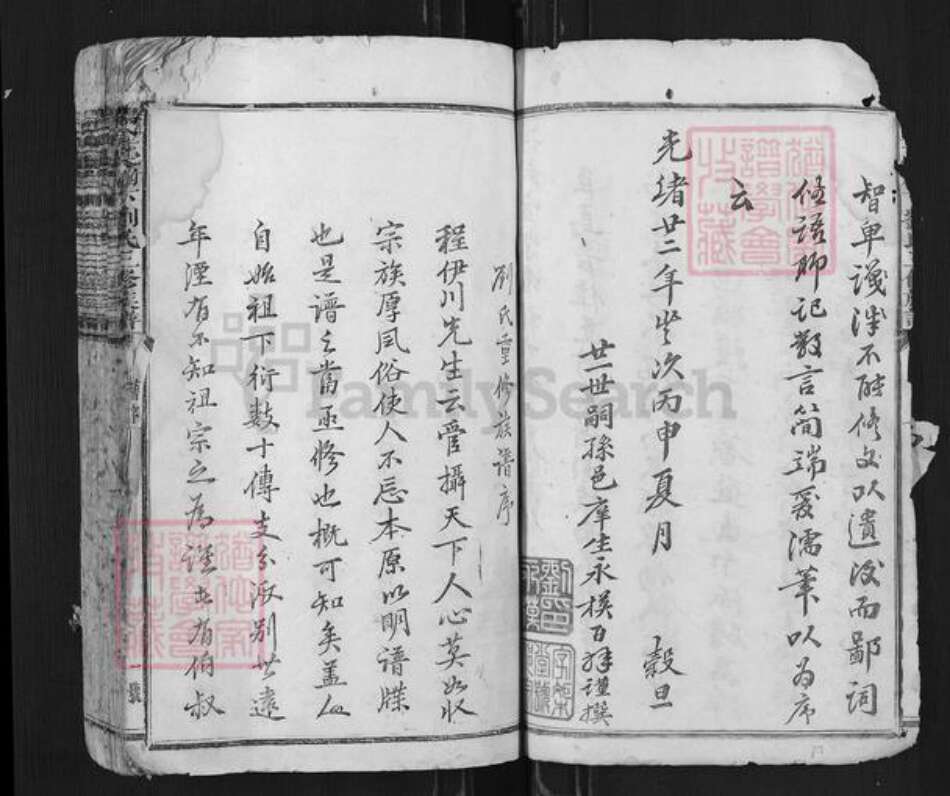 智卑識淺不能修文以遺後而鄙詞
俚語聊記數言簡端爰濡筆以為序
云
光緒廿二年歲次丙申夏月 穀旦
廿一世嗣孫邑庠生永模百拜謹撰
劉氏重修族譜序
程伊川先生云管攝天下人心莫如收
宗族厚風俗使人不忘本原以明譜牒
也是譜之當亟修也概可知矣蓋人
自始祖下衍數十傳支分派別世遠
年湮有不知祖宗之為誰者有伯叔
FamilySearch